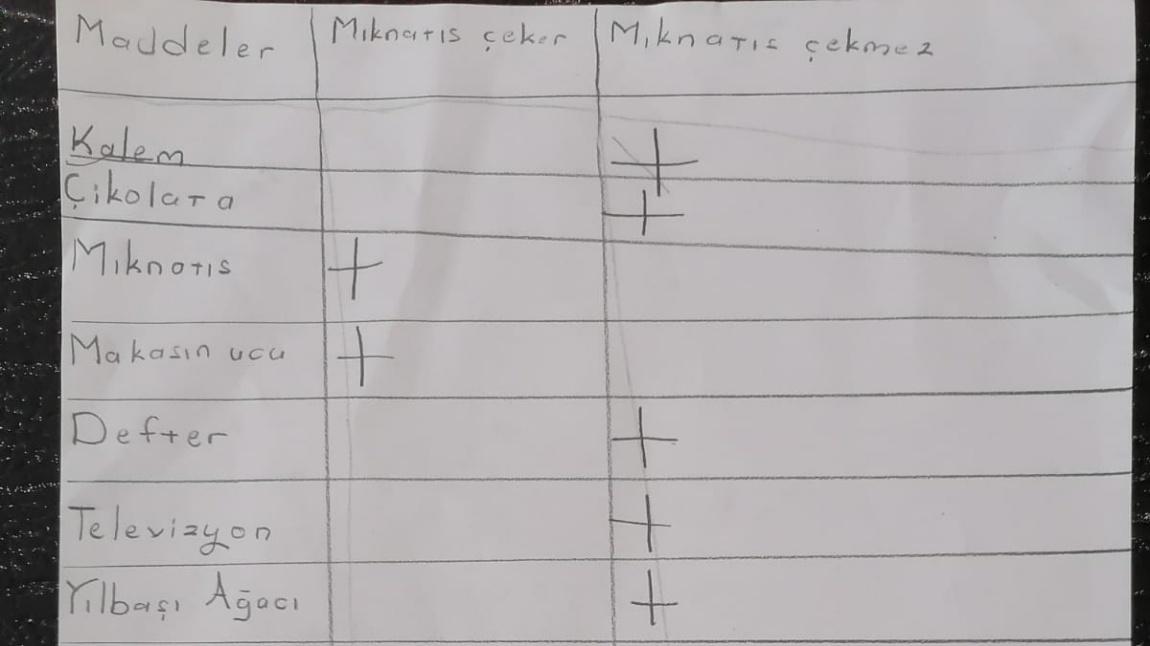 Maddeler Mıknatıs çeker Mıknatıs çekmez
Kalem +
Çikolata +
Mıknatıs +
Makasın ucu +
Defter +
Televizyon +
Yılbaşı Ağacı +